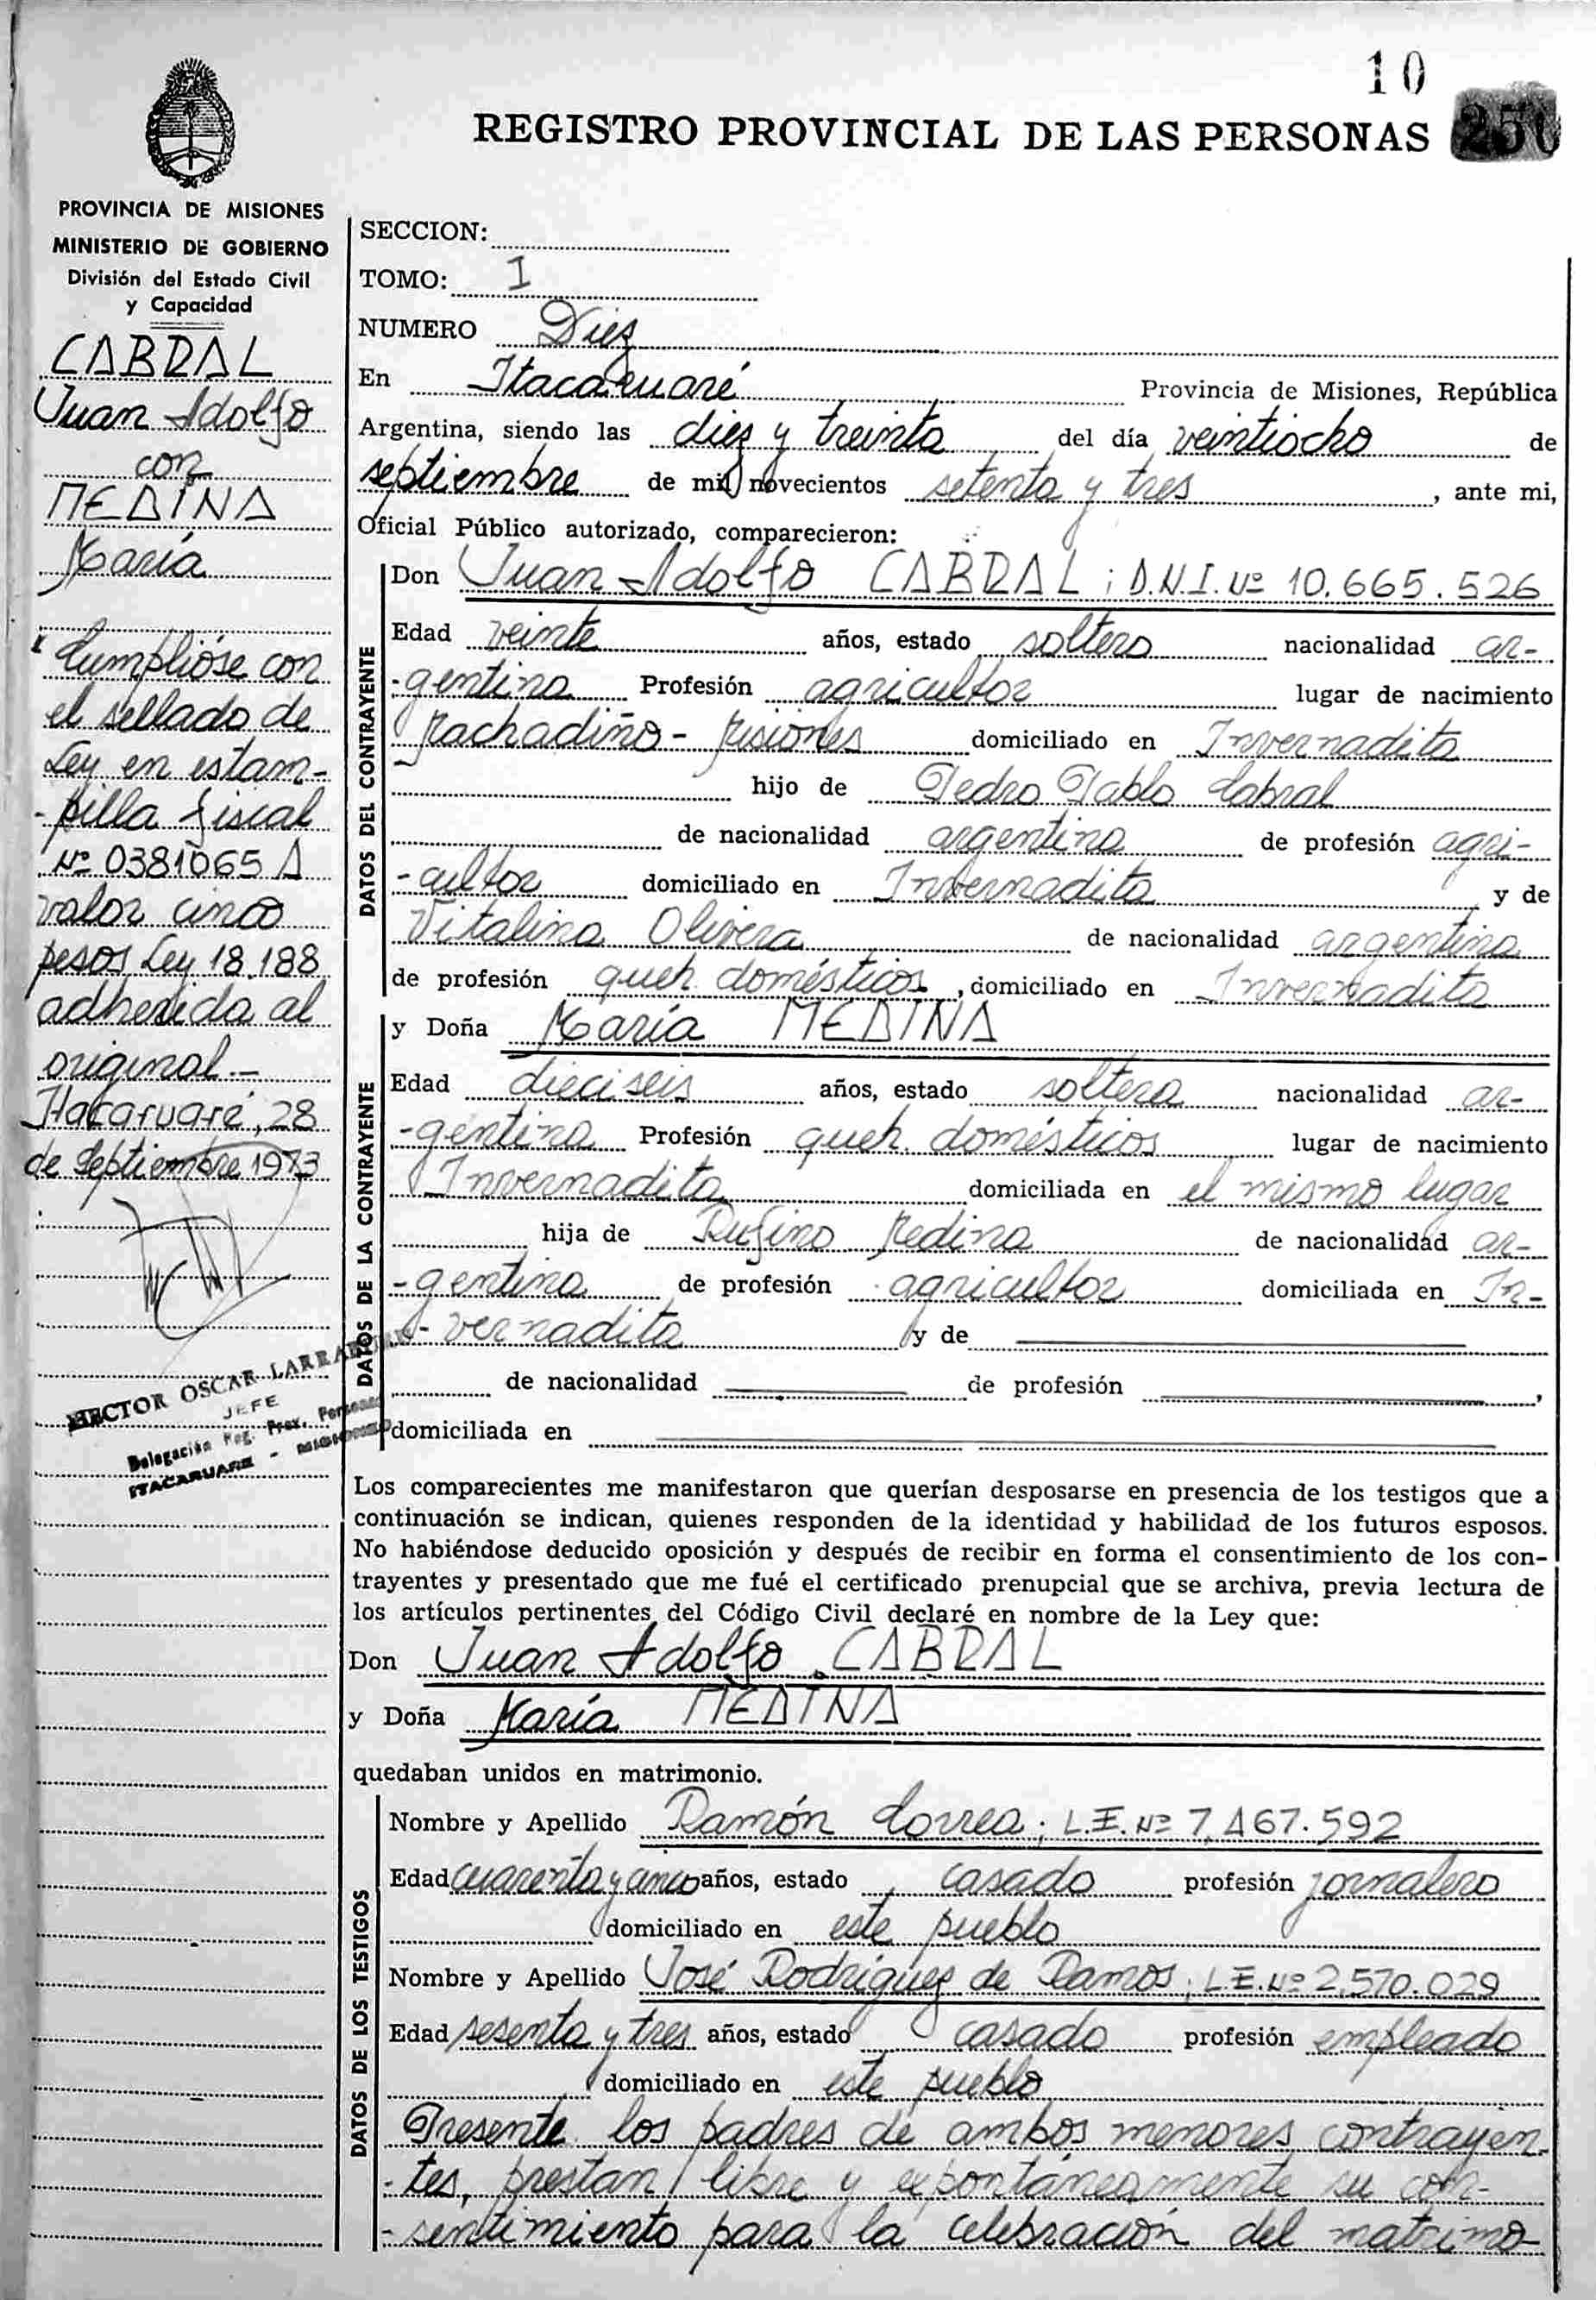 10
250
REGISTRO PROVINCIAL DE LAS PERSONAS
PROVINCIA DE MISIONES
MINISTERIO DE GOBIERNO
División del Estado Civil
y Capacidad
CABRAL
Juan Adolfo
con
MEDINA
María
Cumplióse con
el sellado de
Ley en estam-
-pilla fiscal
Nº 0381065 A
valor cinco
pesos Ley 18.188
adherida al
original.-
Itacaruaré, 28
de Septiembre 1973
HECTOR OSCAR
JEFE
Delegación Reg. Prov. Personas
ITACARUARE - MISIONES
SECCION:
TOMO: I
NUMERO Diez
En Itacaruaré Provincia de Misiones, República
Argentina, siendo las diez y treinta del día veintiocho de
septiembre de mil novecientos setenta y tres, ante mi,
Oficial Público autorizado, comparecieron:
DATOS DEL CONTRAYENTE
Don Juan Adolfo CABRAL; D.N.I. Nº 10.665.526
Edad veinte años, estado soltero nacionalidad ar-
-gentina Profesión agricultor lugar de nacimiento
Machadiño - Misiones domiciliado en Invernadita
hijo de Pedro Pablo Cabral
de nacionalidad argentina de profesión agri-
-cultor domiciliado en Invernadita y de
Vitalina Olivera de nacionalidad argentina
de profesión queh. domésticos, domiciliado en Invernadita
DATOS DE LA CONTRAYENTE
y Doña María MEDINA
Edad dieciseis años, estado soltera nacionalidad ar-
-gentina Profesión queh. domésticos lugar de nacimiento
Invernadita domiciliada en el mismo lugar
hija de Rufino Medina de nacionalidad ar-
-gentina de profesión agricultor domiciliada en In-
-vernadita y de
de nacionalidad de profesión ,
domiciliada en
Los comparecientes me manifestaron que querían desposarse en presencia de los testigos que a
continuación se indican, quienes responden de la identidad y habilidad de los futuros esposos.
No habiéndose deducido oposición y después de recibir en forma el consentimiento de los con-
trayentes y presentado que me fué el certificado prenupcial que se archiva, previa lectura de
los artículos pertinentes del Código Civil declaré en nombre de la Ley que:
Don Juan Adolfo CABRAL
y Doña María MEDINA
quedaban unidos en matrimonio.
DATOS DE LOS TESTIGOS
Nombre y Apellido Ramón Correa; L.E. Nº 7.467.592
Edad cuarenta y cinco años, estado casado profesión jornalero
domiciliado en este pueblo
Nombre y Apellido José Rodriguez de Ramos; L.E. Nº 2.570.029
Edad sesenta y tres años, estado casado profesión empleado
domiciliado en este pueblo
Presente los padres de ambos menores contrayen-
-tes, prestan libre y expontáneamente su con-
-sentimiento para la celebración del matrimo-